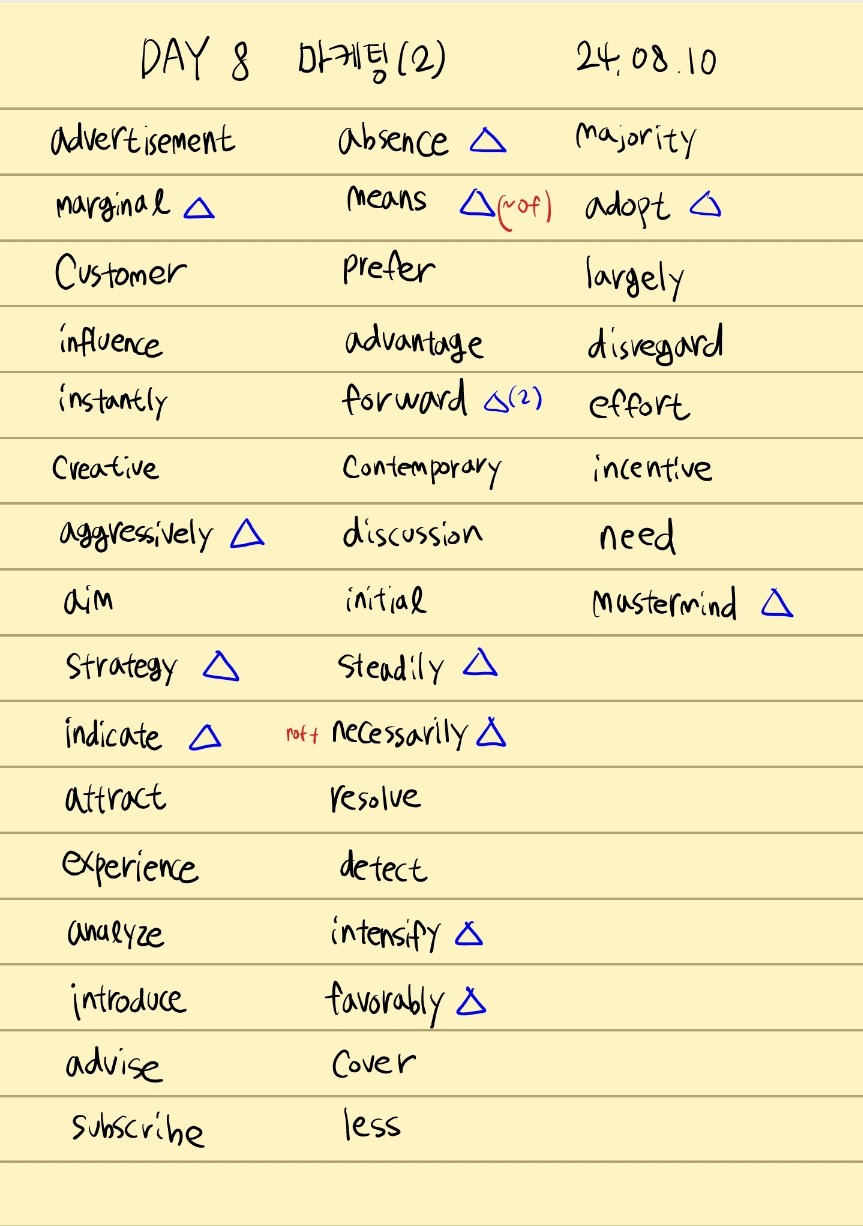 DAY 8 마케팅(2) 24.08.10
advertisement absence △ majority
marginal △ means △(~of) adopt △
Customer prefer largely
influence advantage disregard
instantly forward △(2) effort
Creative Contemporary incentive
aggressively △ discussion need
aim initial mastermind △
strategy △ steadily △
indicate △ not+ necessarily △
attract resolve
experience detect
analyze intensify △
introduce favorably △
advise Cover
subscribe less